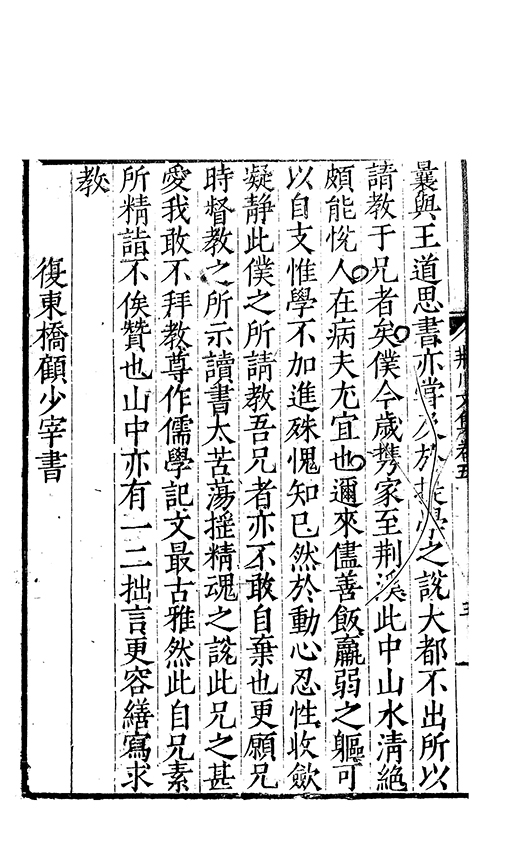 曩與王道思書亦嘗及於技學之說大都不出所以
請教于兄者矣僕今歲擕家至荆溪此中山水清絶
頗能悅人在病夫尤宜也邇來儘善飯羸弱之軀可
以自支惟學不加進殊愧知已然於動心忍性收歛
凝静此僕之所請教吾兄者亦不敢自棄也更願兄
時督教之所示讀書太苦蕩摇精魂之說此兄之甚
愛我敢不拜教尊作儒學記文最古雅然此自兄素
所精詣不俟贊也山中亦有一二拙言更容繕寫求
教
復東橋顧少宰書
荆川文集卷五